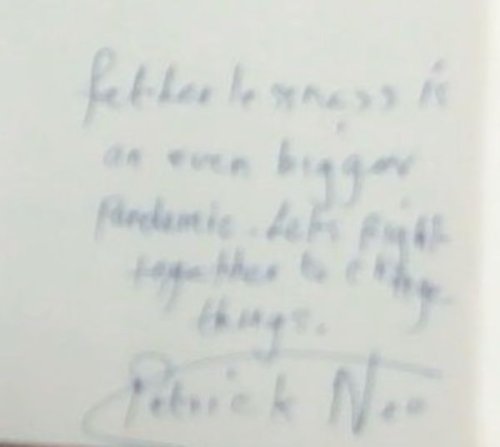 fatherlessness is
an even bigger
Pandemic. Let's fight
together to change
things.
Patrick Neo